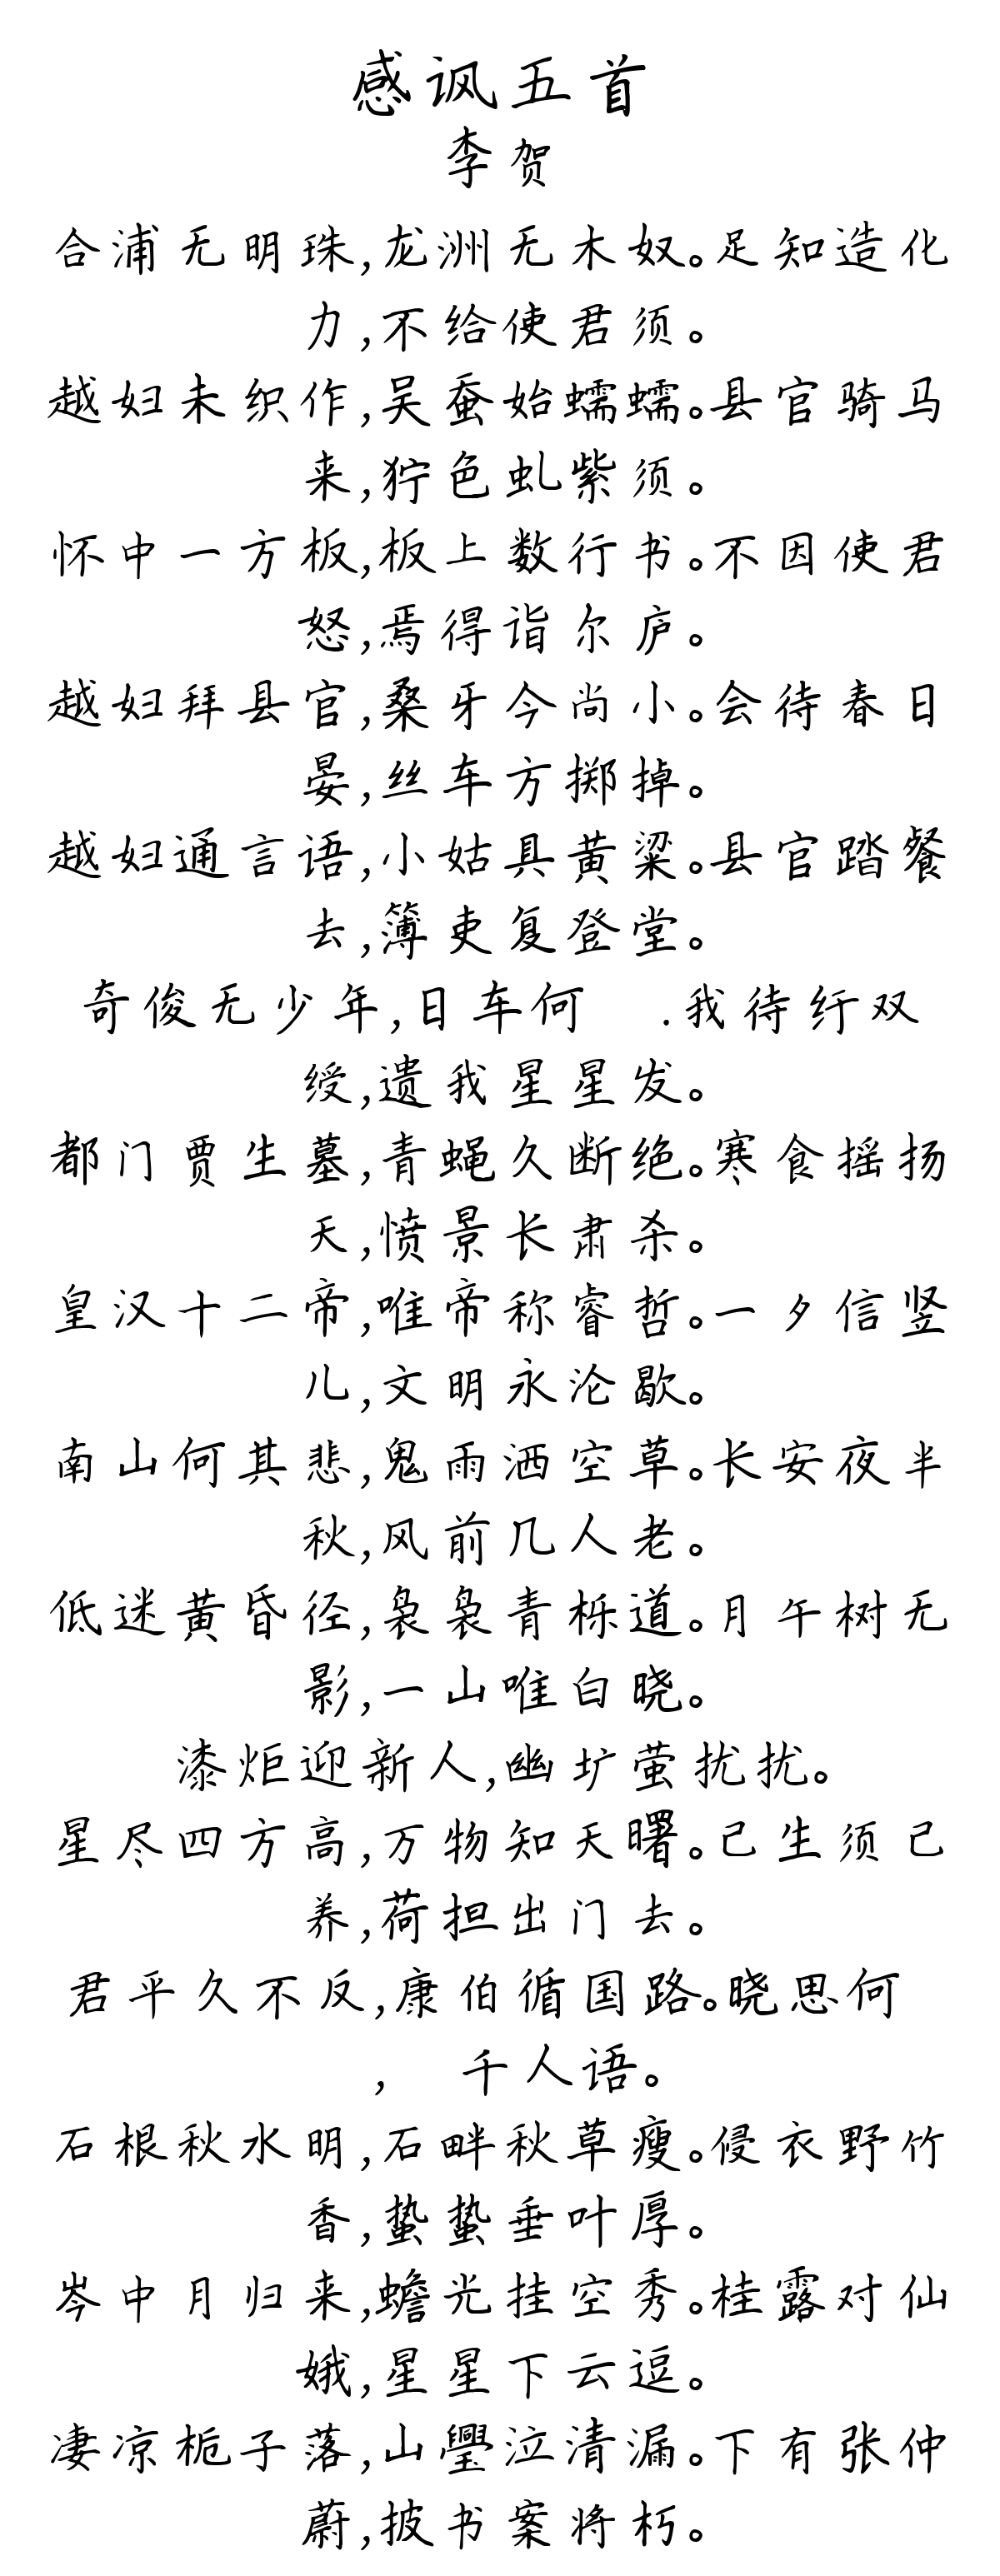 感讽五首
李贺
合浦无明珠,龙洲无木奴。足知造化
力,不给使君须。
越妇未织作,吴蚕始蠕蠕。县官骑马
来,狞色虬紫须。
怀中一方板,板上数行书。不因使君
怒,焉得诣尔庐。
越妇拜县官,桑牙今尚小。会待春日
晏,丝车方掷掉。
越妇通言语,小姑具黄粱。县官踏餐
去,簿吏复登堂。
奇俊无少年,日车何 .我待纡双
绶,遗我星星发。
都门贾生墓,青蝇久断绝。寒食摇扬
天,愤景长肃杀。
皇汉十二帝,唯帝称睿哲。一夕信竖
儿,文明永沦歇。
南山何其悲,鬼雨洒空草。长安夜半
秋,风前几人老。
低迷黄昏径,袅袅青栎道。月午树无
影,一山唯白晓。
漆炬迎新人,幽圹萤扰扰。
星尽四方高,万物知天曙。己生须己
养,荷担出门去。
君平久不反,康伯循国路。晓思何
, 千人语。
石根秋水明,石畔秋草瘦。侵衣野竹
香,蛰蛰垂叶厚。
岑中月归来,蟾光挂空秀。桂露对仙
娥,星星下云逗。
凄凉栀子落,山璺泣清漏。下有张仲
蔚,披书案将朽。